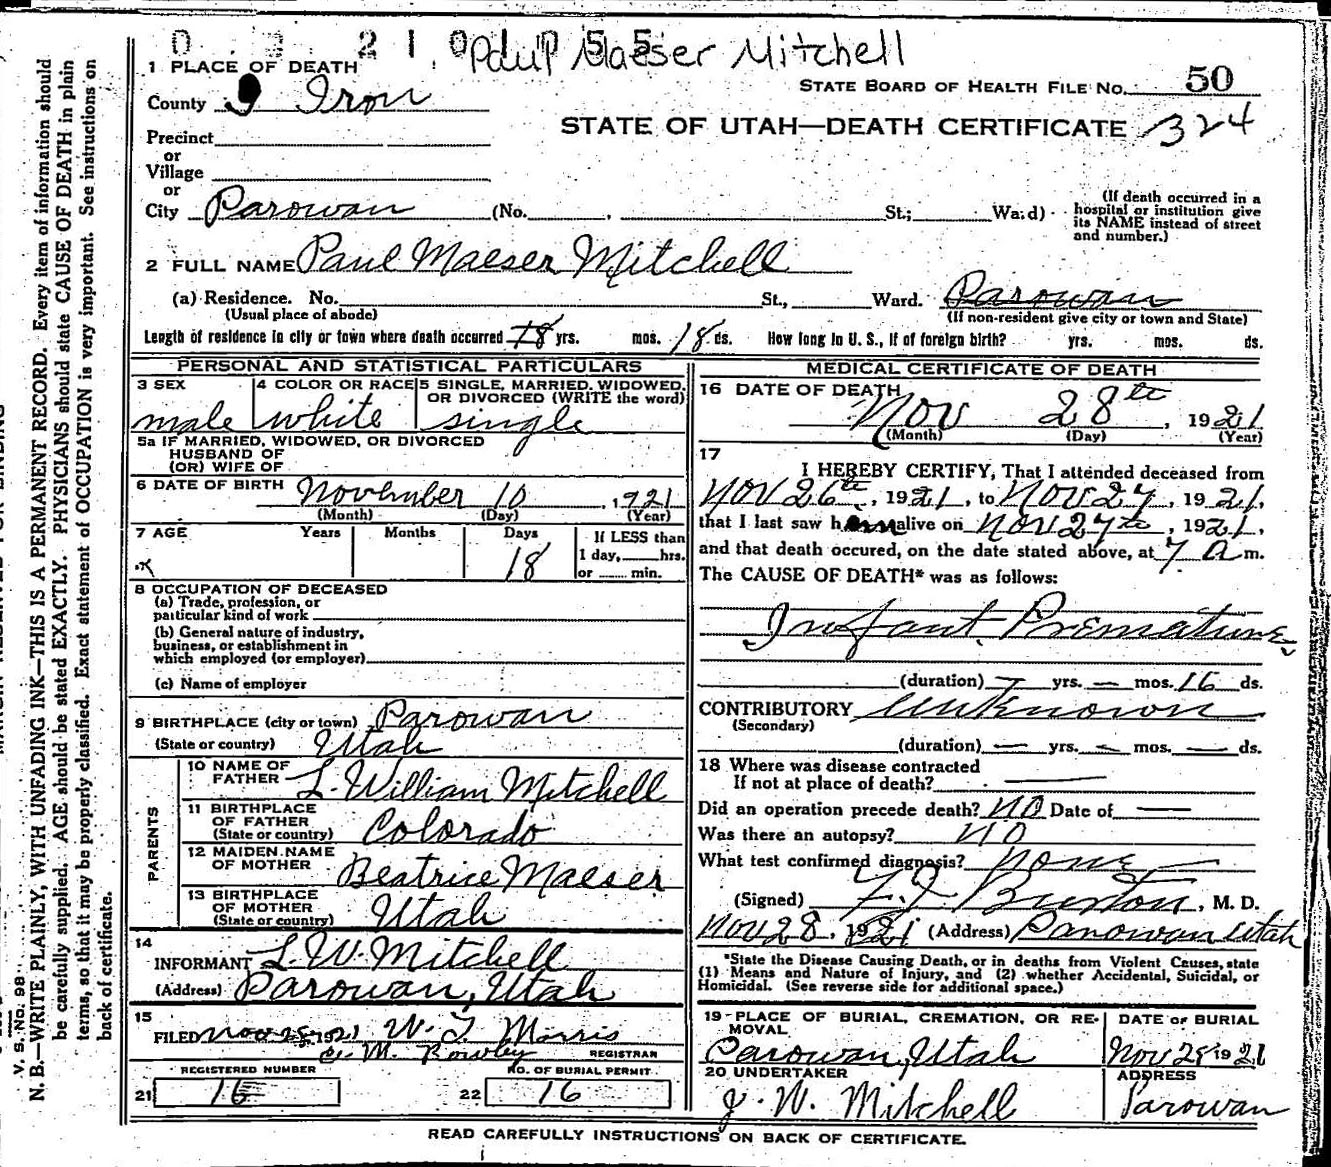 Paul Maeser Mitchell
1 PLACE OF DEATH
STATE BOARD OF HEALTH FILE No. 50
County Iron
STATE OF UTAH—DEATH CERTIFICATE 324
Precinct
or
Village
or
City Parowan (No. , St.; Ward)
(If death occurred in a hospital or institution give its NAME instead of street and number.)
2 FULL NAME Paul Maeser Mitchell
(a) Residence. No. St., Ward. Parowan
(Usual place of abode) (If non-resident give city or town and State)
Length of residence in city or town where death occurred 18 yrs. mos. 18 ds. How long in U. S., if of foreign birth? yrs. mos. ds.
PERSONAL AND STATISTICAL PARTICULARS
3 SEX
male
4 COLOR OR RACE
white
5 SINGLE, MARRIED, WIDOWED, OR DIVORCED (WRITE the word)
single
5a IF MARRIED, WIDOWED, OR DIVORCED
HUSBAND OF
(OR) WIFE OF
6 DATE OF BIRTH November 10, 1921
(Month) (Day) (Year)
7 AGE Years Months Days
18
If LESS than
1 day, hrs.
or min.
8 OCCUPATION OF DECEASED
(a) Trade, profession, or
particular kind of work
(b) General nature of industry,
business, or establishment in
which employed (or employer)
(c) Name of employer
9 BIRTHPLACE (city or town) Parowan
(State or country) Utah
PARENTS
10 NAME OF FATHER L. William Mitchell
11 BIRTHPLACE OF FATHER
(State or country) Colorado
12 MAIDEN NAME OF MOTHER Beatrice Maeser
13 BIRTHPLACE OF MOTHER
(State or country) Utah
14
INFORMANT L. W. Mitchell
(Address) Parowan, Utah
15
FILED Nov 28 1921 W. T. Morris
REGISTRAR
REGISTERED NUMBER
21 16
NO. OF BURIAL PERMIT
22 16
MEDICAL CERTIFICATE OF DEATH
16 DATE OF DEATH
Nov 28th, 1921
(Month) (Day) (Year)
17
I HEREBY CERTIFY, That I attended deceased from
Nov 26th, 1921, to Nov 27, 1921,
that I last saw him alive on Nov 27th, 1921,
and that death occured, on the date stated above, at 7 a m.
The CAUSE OF DEATH* was as follows:
Infant Premature
(duration) — yrs. — mos. 16 ds.
CONTRIBUTORY Unknown
(Secondary)
(duration) — yrs. — mos. — ds.
18 Where was disease contracted
If not at place of death? —
Did an operation precede death? NO Date of —
Was there an autopsy? NO
What test confirmed diagnosis? None
(Signed) Burton, M. D.
Nov 28, 1921 (Address) Parowan Utah
*State the Disease Causing Death, or in deaths from Violent Causes, state
(1) Means and Nature of Injury, and (2) whether Accidental, Suicidal, or
Homicidal. (See reverse side for additional space.)
19 PLACE OF BURIAL, CREMATION, OR REMOVAL
Parowan, Utah
DATE OF BURIAL
Nov 28 1921
20 UNDERTAKER
J. W. Mitchell
ADDRESS
Parowan
READ CAREFULLY INSTRUCTIONS ON BACK OF CERTIFICATE.
V. S. No. 98
N. B.—WRITE PLAINLY, WITH UNFADING INK—THIS IS A PERMANENT RECORD. Every item of information should
be carefully supplied. AGE should be stated EXACTLY. PHYSICIANS should state CAUSE OF DEATH in plain
terms, so that it may be properly classified. Exact statement of OCCUPATION is very important. See instructions on
back of certificate.